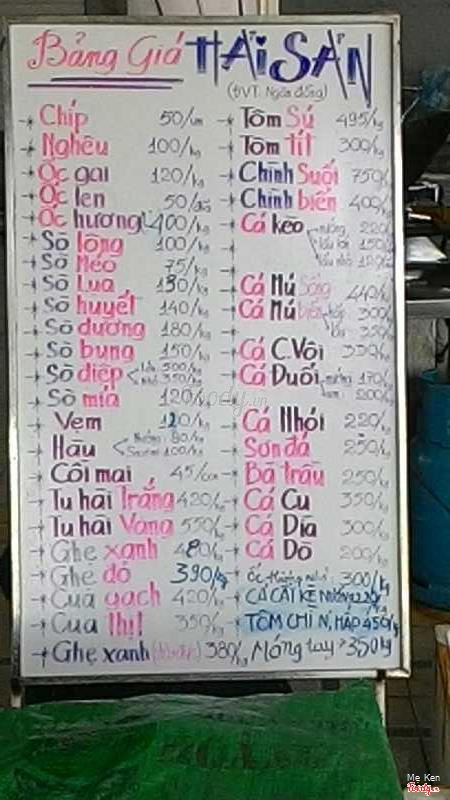 Bảng Giá HẢI SẢN
(ĐVT: Ngàn đồng)
Chíp 50/
Nghêu 100/kg
Ốc gai 120/kg
Ốc len 50/
Ốc hương 400/kg
Sò lông 100/kg
Sò Méo 75/kg
Sò Lụa 130/kg
Sò huyết 140/kg
Sò dương 180/kg
Sò bung 150/kg
Sò điệp lớn 500/kg
nhỏ 350/kg
Sò mía 120/kg
Vẹm 120/kg
Hàu 80/kg
100/kg
Cồi mai 45/con
Tu hài Trắng 420/kg
Tu hài Vàng 550/kg
Ghẹ xanh 480/kg
Ghẹ đỏ 390/kg
Cua gạch 420/kg
Cua thịt 350/kg
Ghẹ xanh 380/kg
Tôm Sú 495/kg
Tôm tít 300/kg
Chình Suối 750/kg
Chình biển 400/kg
Cá kèo nướng 220/
lẩu lớn 150/
lẩu nhỏ 120/kg
Cá Mú Sống 440/kg
Cá Mú biển hấp 300/
lẩu 350/
Cá C.Vôi
Cá Đuối nướng 170/kg
200/kg
Cá Nhói 220/kg
Sơn đá 250/kg
Bã trầu 250/kg
Cá Cu 350/kg
Cá Dìa 300/kg
Cá Dò 200/kg
Ốc Hương nhỏ 300/kg
TÔM CHÌ N, HẤP 450/kg
Móng tay 350kg
Me Ken
Foody.vn